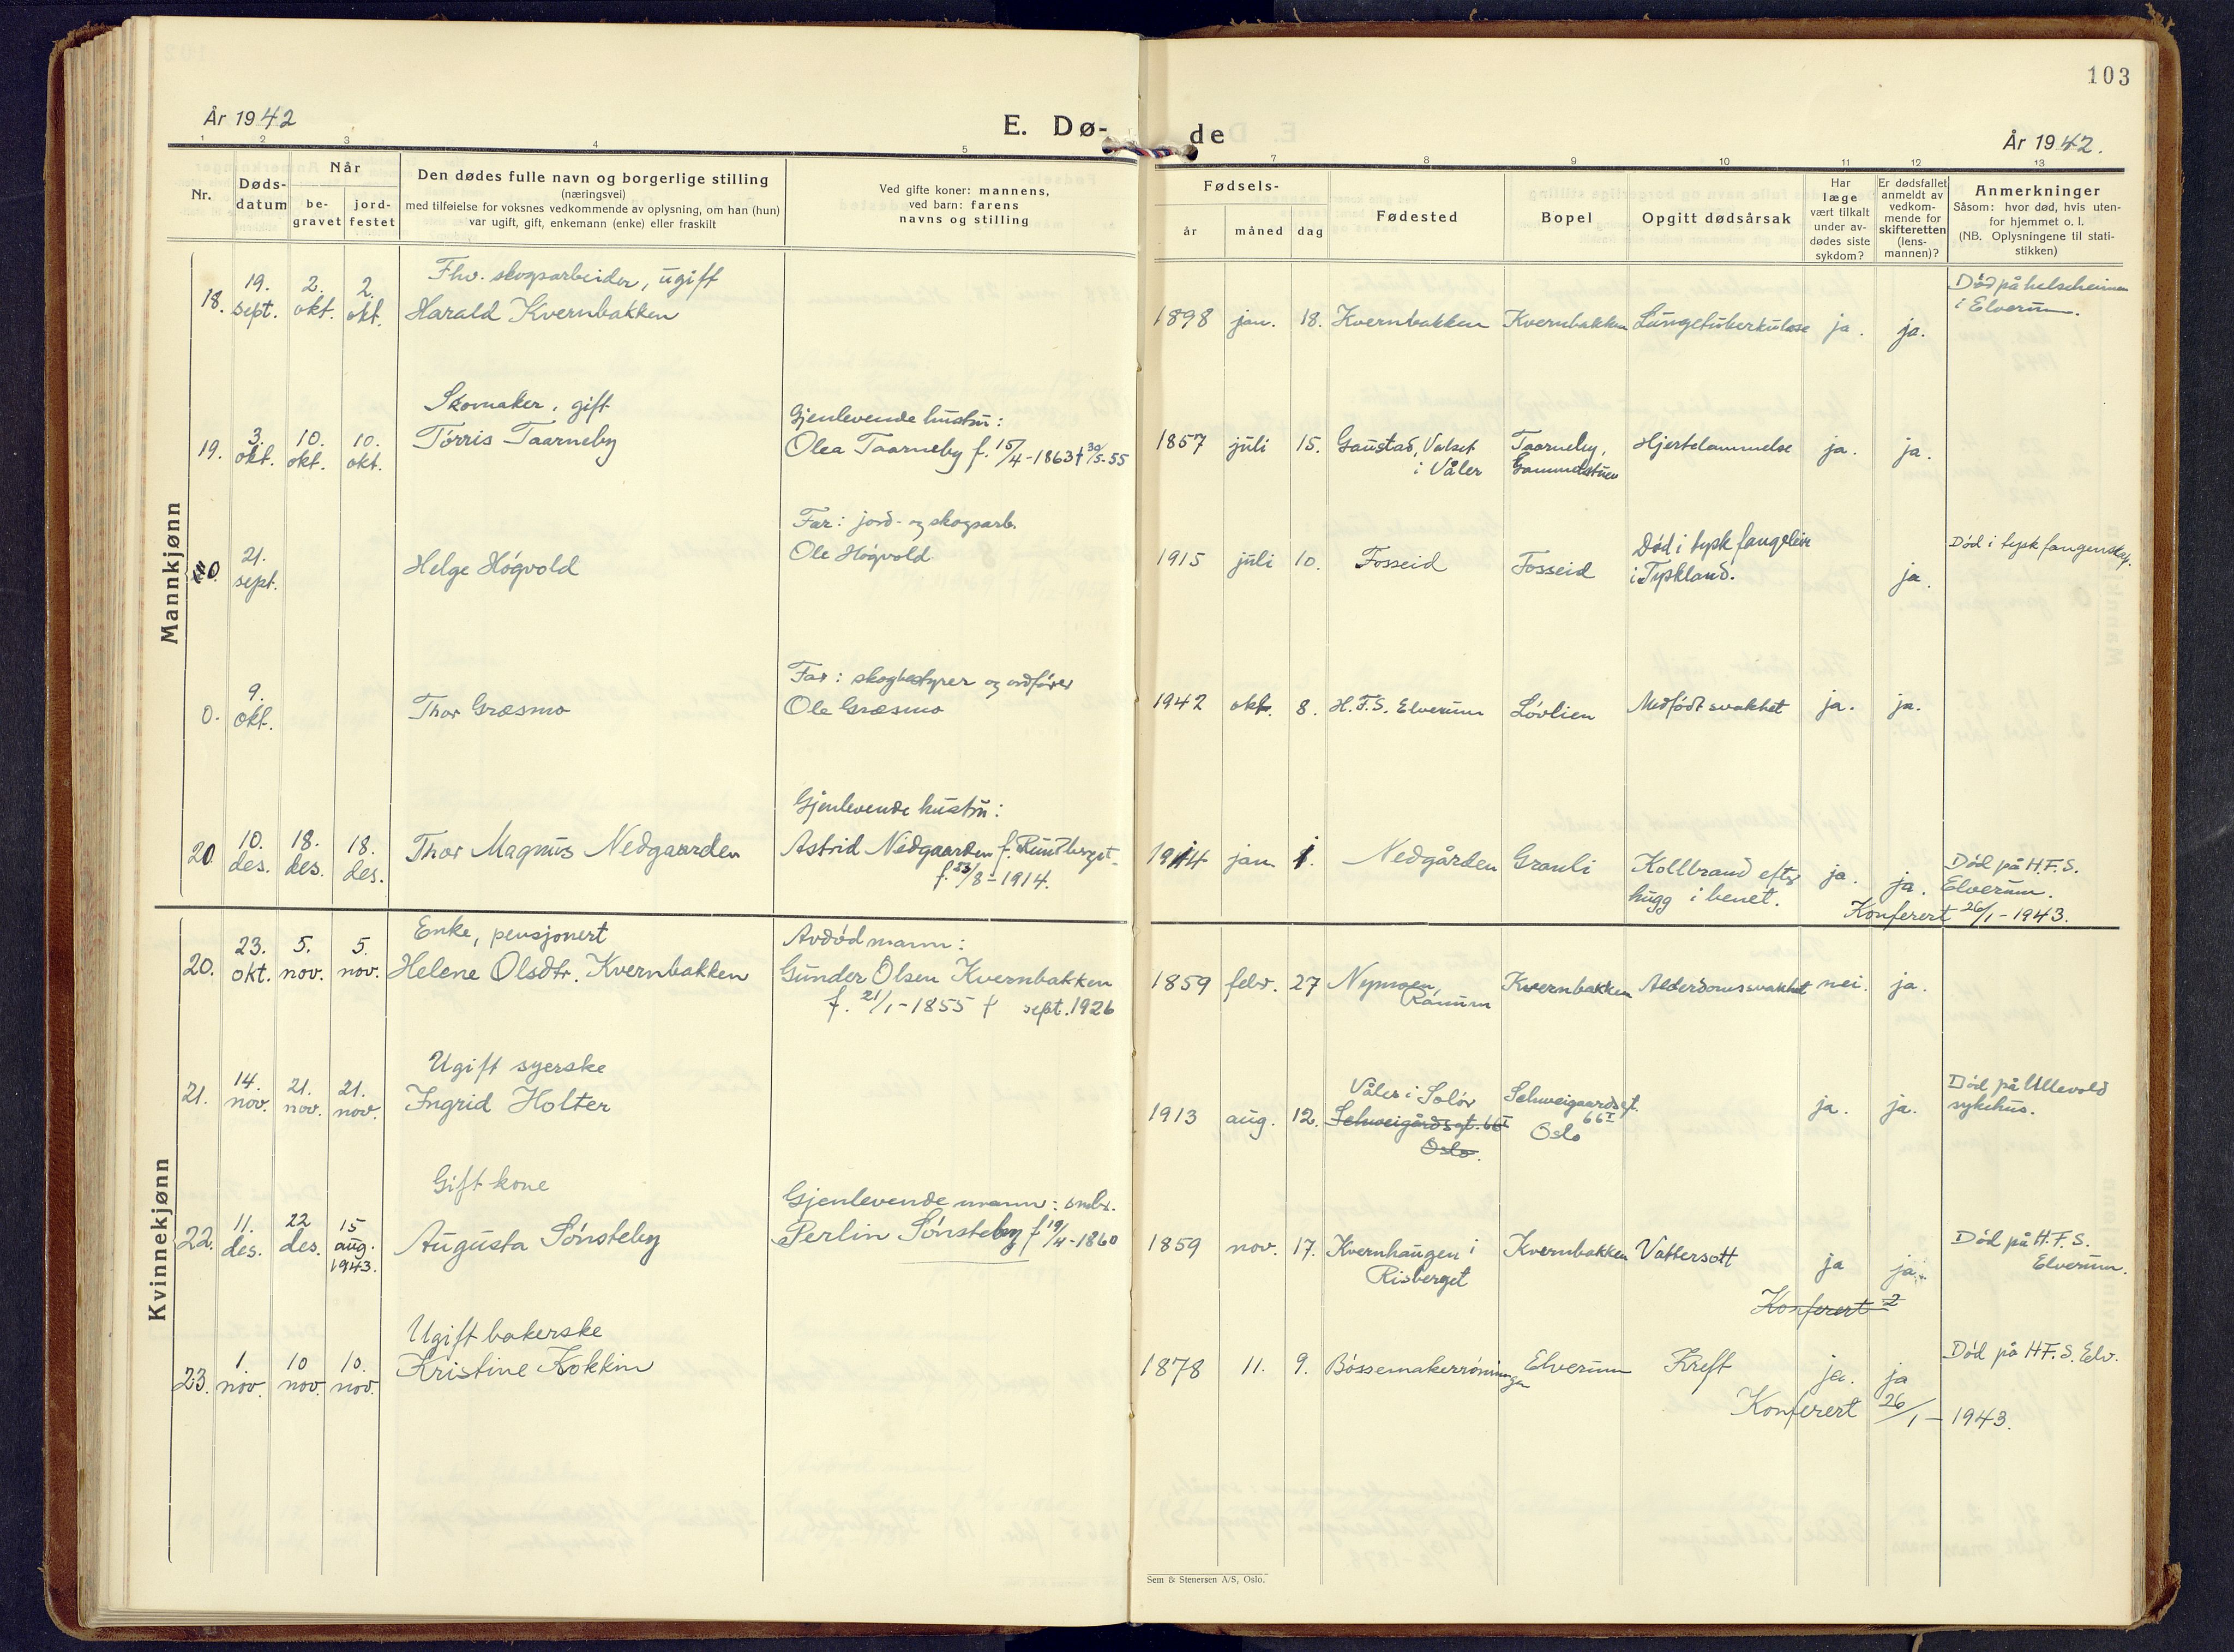 103
År 1942
E. Dø-
de
År 1942.
1 2 3 4 5 7 8 9 10 11 12 13
Nr.
Døds-
datum
Når
be-
gravet
jord-
festet
Den dødes fulle navn og borgerlige stilling
(næringsvei)
med tilføielse for voksnes vedkommende av oplysning, om han (hun)
var ugift, gift, enkemann (enke) eller fraskilt
Ved gifte koner: mannens,
ved barn: farens
navns og stilling
Fødsels-
år måned dag
Fødested
Bopel
Opgitt dødsårsak
Har
læge
vært tilkalt
under av-
dødes siste
sykdom?
Er dødsfallet
anmeldt av
vedkom-
mende for
skifteretten
(lens-
mannen)?
Anmerkninger
Såsom: hvor død, hvis uten-
for hjemmet o. l.
(NB. Oplysningene til stati-
stikken)
Mannkjønn
Fhv. skogsarbeider, ugift
18. 19. sept. 2. okt. 2. okt. Harald Kvernbakken
1898 jan. 18. Kvernbakken Kvernbakken Lungetuberkulose ja. ja.
Død på helseheimen
i Elverum.
Skomaker, gift
Gjenlevende hustru:
19. 3. okt. 10. okt. 10. okt. Torris Taarneby
Olea Taarneby f. 15/4-1863 † 30/5-55
1857 juli 15. Gaustad, Valset
i Våler
Taarneby,
Gammelstuen
Hjertelammelse ja. ja.
Far: jord- og skogsarb.
0. 21. sept. Helge Høgvold
Ole Høgvold
1915 juli 10. Fosseid Fosseid
Død i tysk fangeleir
i Tyskland.
ja.
Død i tysk fangenskap.
Far: skogbestyrer og ordfører
0. 9. okt. Thor Græsmo
Ole Græsmo
1942 okt. 8. H.F.S. Elverum Løvlien Medfødt svakhet ja. ja.
Gjenlevende hustru:
20 10. des. 18. des. 18. des. Thor Magnus Nedgaarden
Astrid Nedgaarden f.
f. 23/8-1914.
1914 jan. 1. Nedgården Granli
Kollbrand efter
hugg i benet.
ja. ja.
Død på H.F.S.
Elverum.
Konferert 26/1-1943.
Kvinnekjønn
Enke, pensjonert
Avdød mann:
20. 23. okt. 5. nov. 5. nov. Helene Olsdtr. Kvernbakken
Gunder Olsen Kvernbakken
f. 21/1-1855 † sept. 1926
1859 febr. 27 Nymoen,
Ranum
Kvernbakken Alderdomssvakhet nei. ja.
Ugift syerske
21. 14. nov. 21. nov. 21. nov. Ingrid Holter
1913 aug. 12. Våler i Solør
Schweigårdsgt. 66 I
Oslo.
Schweigaardsgt.
66 I
Oslo
ja. ja.
Død på Ullevold
sykehus.
Gift kone
Gjenlevende mann: smbr.
22. 11. des. 22 des. 15 aug. 1943. Augusta Sønsteby
Perlin Sønsteby f. 19/4-1860
1859 nov. 17. Kvernhaugen i
Risberget
Kvernbakken Vattersott ja ja.
Død på H.F.S.
Elverum.
Konferert 2
Ugift bakerske
23. 1. nov. 10 nov. 10. nov. Kristine Kokkin
1878 11. 9. Bøssemakerrøningen Elverum Kreft ja. ja
Død på H.F.S. Elv.
Konferert 26/1-1943.
Sem & Stenersen A/S, Oslo.